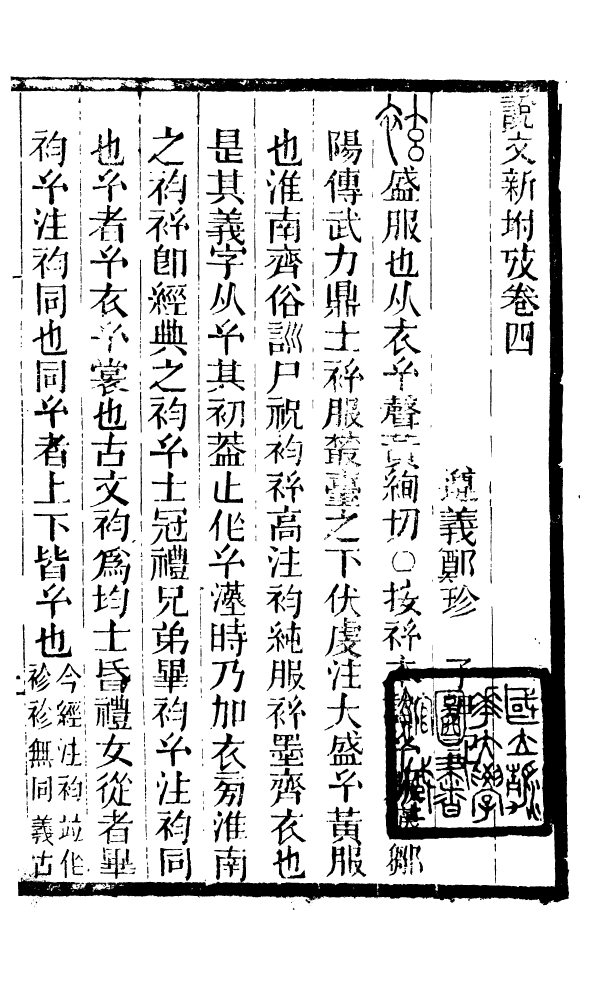 說文新坿攷卷四
遵義鄭珍
袨盛服也从衣玄聲黃絢切○按袨 漢鄒
陽傳武力鼎士袨服叢臺之下伏虔注大盛玄黃服
也淮南齊俗訓尸祝袀袨高注袀純服袨墨齊衣也
是其義字从玄其初蓋止作玄漢時乃加衣旁淮南
之袀袨卽經典之袀玄士冠禮兄弟畢袀玄注袀同
也玄者玄衣玄裳也古文袀爲均士昏禮女從者畢
袀玄注袀同也同玄者上下皆玄也今經注袀竝作
袗袗無同義古